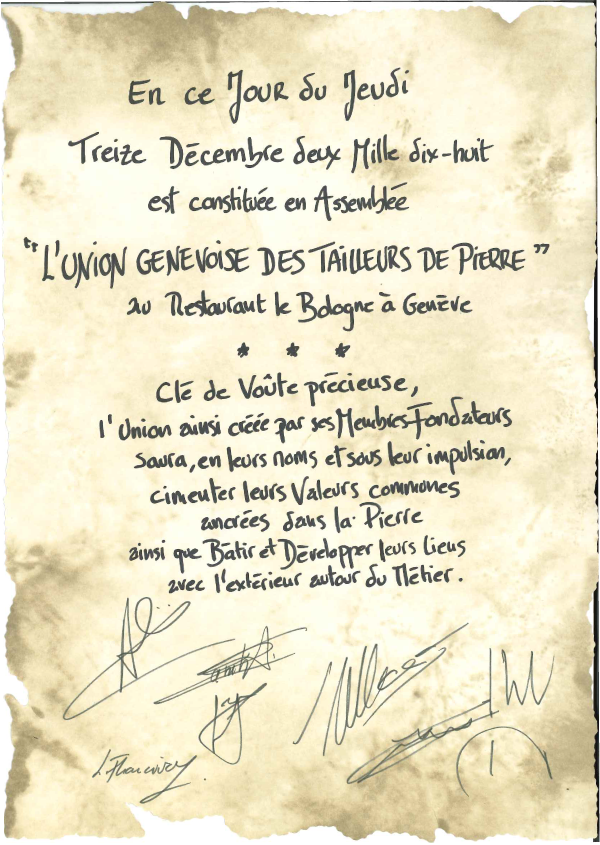 En ce Jour du Jeudi
Treize Décembre deux Mille dix-huit
est constituée en Assemblée
"L'UNION GENEVOISE DES TAILLEURS DE PIERRE"
au Restaurant le Bologne à Genève
* * *
Clé de Voûte précieuse,
l'Union ainsi créée par ses Membres-Fondateurs
saura, en leurs noms et sous leur impulsion,
cimenter leurs Valeurs communes
ancrées dans la Pierre
ainsi que Bâtir et Développer leurs Liens
avec l'extérieur autour du Métier.